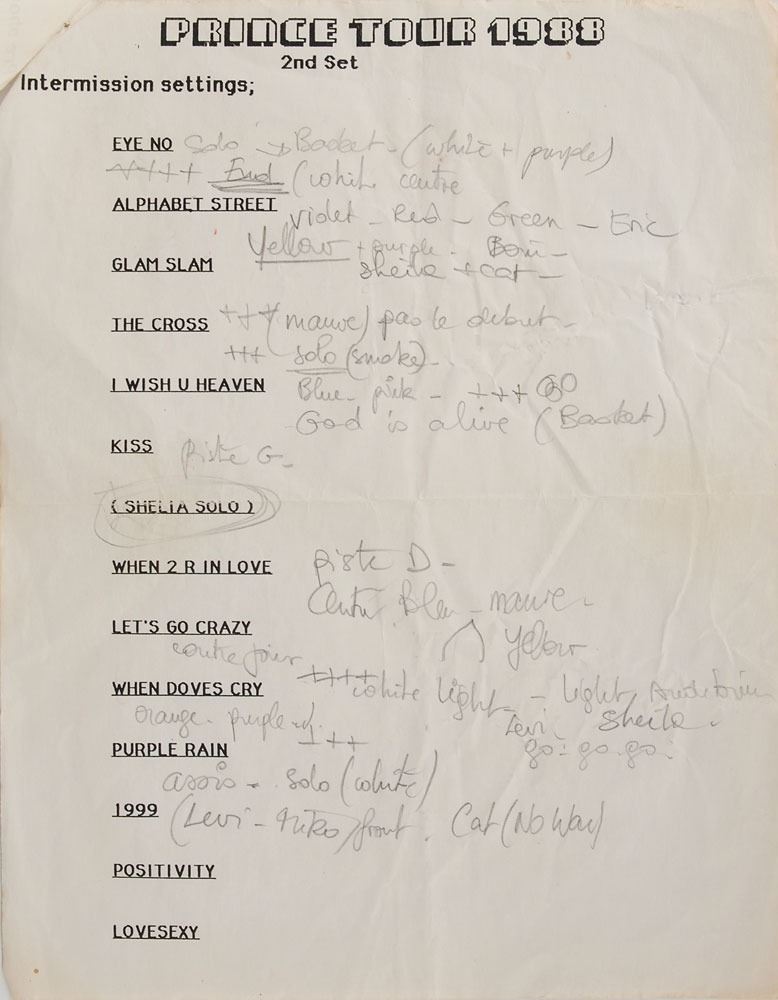 PRINCE TOUR 1988
2nd Set
Intermission settings;
EYE NO Solo → Basket - (white + purple)
++++ End (whit centre
ALPHABET STREET Violet - Red - Green - Eric
Yellow + purple - Boni -
GLAM SLAM Sheila + cat -
THE CROSS +++ (mauve) pas le debut -
+++ solo (smoke) -
I WISH U HEAVEN Blue - pink - +++
God is alive (Basket)
KISS piste G -
( SHELIA SOLO )
WHEN 2 R IN LOVE piste D -
Centre Bleu - mauve -
LET'S GO CRAZY Yellow
contre jour
WHEN DOVES CRY ++++ white light - light Auditorium
orange - purple Levi - Sheila .
PURPLE RAIN +++ go: go. go:
assis - solo (white)
1999 (Levi - Miko) front . Cat (No Way)
POSITIVITY
LOVESEXY